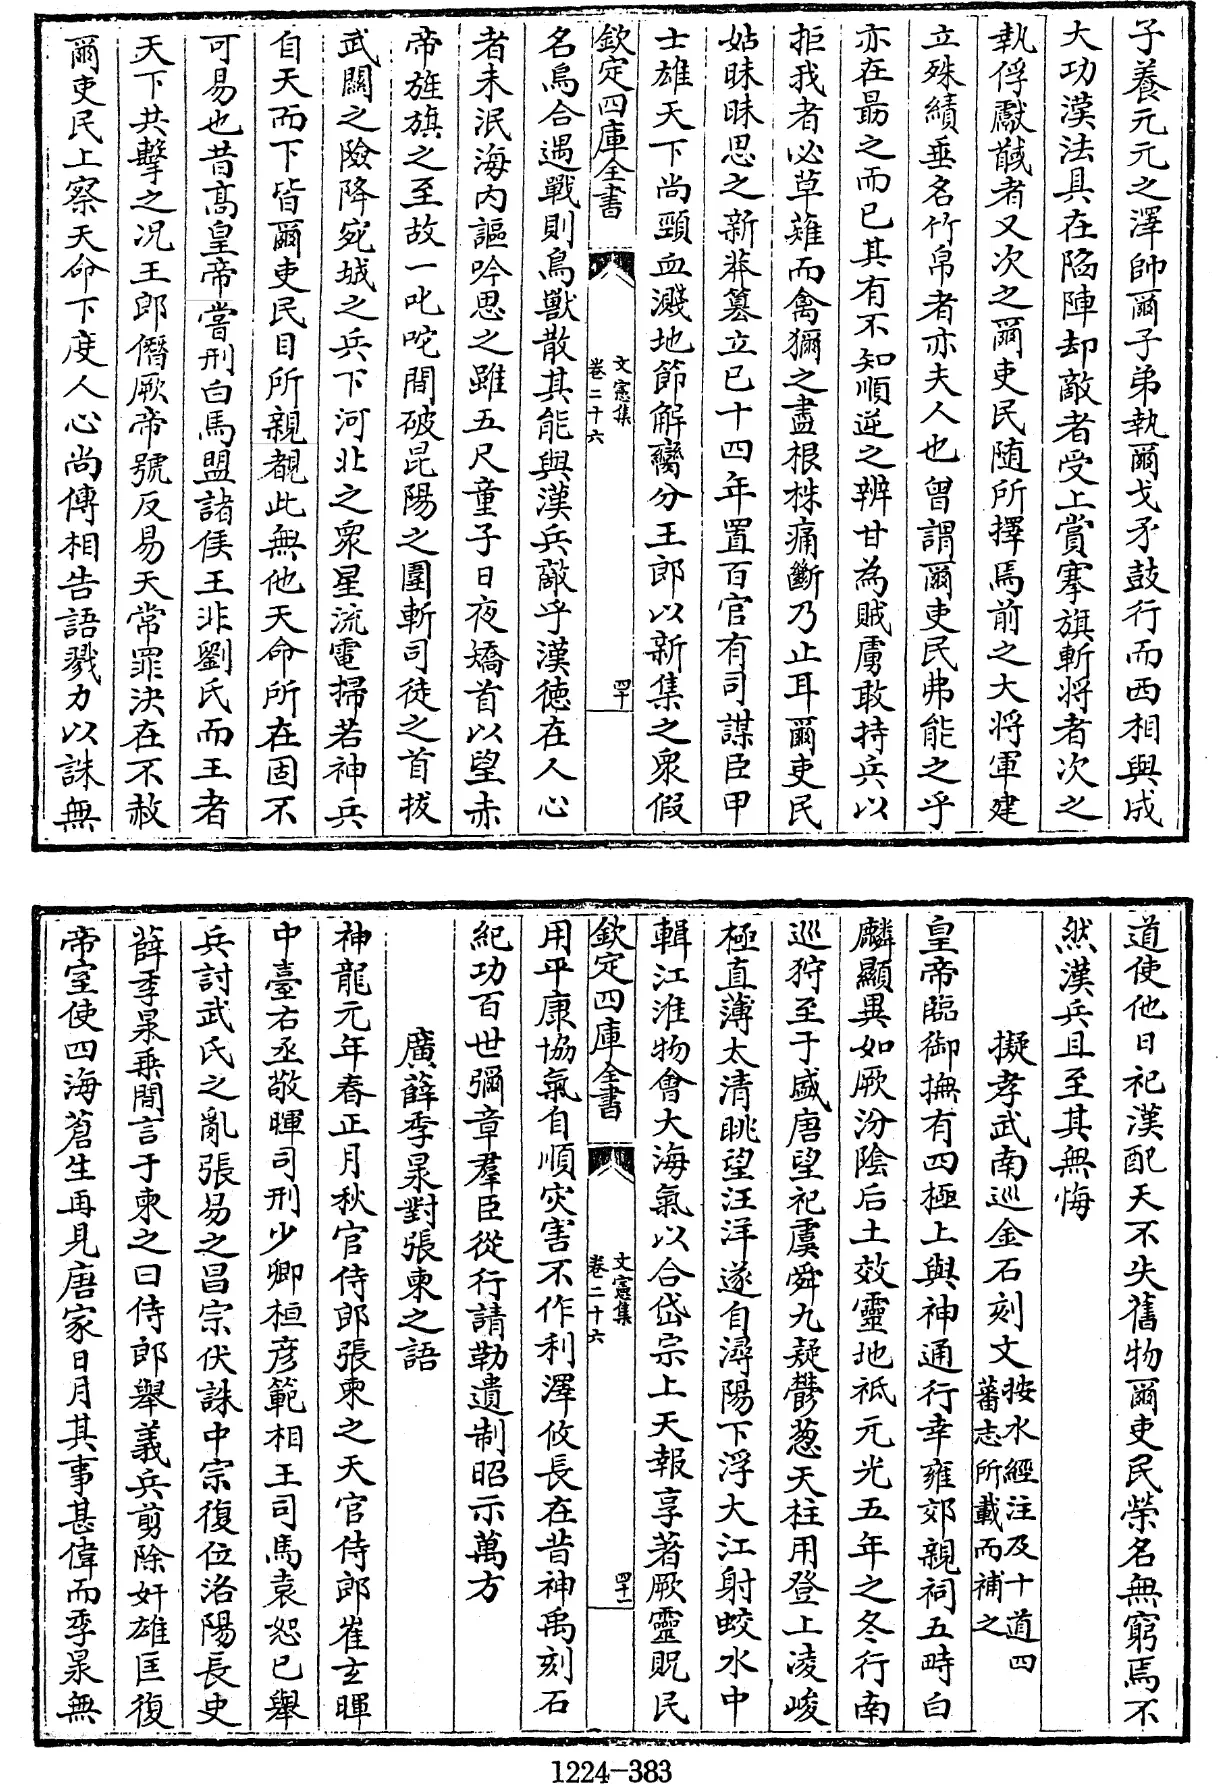 子養元元之澤帥爾子弟執爾戈矛鼓行而西相與成
大功漢法具在陷陣却敵者受上賞搴旗斬将者次之
執俘獻馘者又次之爾吏民随所擇焉前之大將軍建
立殊績垂名竹帛者亦夫人也曽謂爾吏民弗能之乎
亦在勗之而已其有不知順逆之辨甘為賊虜敢持兵以
拒我者必草薙而禽獮之盡根株痛斷乃止耳爾吏民
姑昧昧思之新莽簒立已十四年置百官有司謀臣甲
士雄天下尚頸血濺地節解臠分王郎以新集之衆假
欽定四庫全書
文憲集
卷二十六
四十
名烏合遇戰則鳥獸散其能與漢兵敵乎漢徳在人心
者未泯海内謳吟思之雖五尺童子日夜矯首以望赤
帝旌旗之至故一叱咤間破昆陽之圍斬司徒之首拔
武關之險降宛城之兵下河北之衆星流電掃若神兵
自天而下皆爾吏民目所親覩此無他天命所在固不
可易也昔髙皇帝嘗刑白馬盟諸侯王非劉氏而王者
天下共擊之况王郎僭厥帝號反易天常罪決在不赦
爾吏民上察天命下度人心尚傳相告語戮力以誅無
道使他日祀漢配天不失舊物爾吏民榮名無窮焉不
然漢兵且至其無悔
擬孝武南巡金石刻文按水經注及十道四
蕃志所載而補之
皇帝臨御撫有四極上與神通行幸雍郊親祠五畤白
麟顯異如厥汾陰后土效靈地祇元光五年之冬行南
巡狩至于盛唐望祀虞舜九疑鬱葱天柱用登上凌峻
極直薄太清眺望汪洋遂自潯陽下浮大江射蛟水中
輯江淮物會大海氣以合岱宗上天報享著厥靈貺民
欽定四庫全書
文憲集
卷二十六
四十一
用平康協氣自順灾害不作利澤攸長在昔神禹刻石
紀功百世彌章羣臣從行請勒遺制昭示萬方
廣薛季泉對張柬之語
神龍元年春正月秋官侍郎張柬之天官侍郎崔玄暉
中臺右丞敬暉司刑少卿桓彦範相王司馬袁恕已舉
兵討武氏之亂張易之昌宗伏誅中宗復位洛陽長史
薛季泉乗間言于柬之曰侍郎舉義兵剪除奸雄匡復
帝室使四海蒼生再見唐家日月其事甚偉而季泉無
1224-383